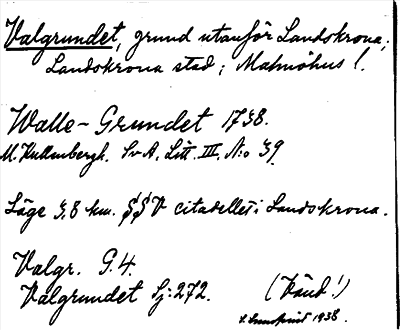 Valgrundet, grund utanför Landskrona,
Landskrona stad; Malmöhus l.
Walle-Grundet 1738.
M. Kullenbergh. Sv A. Litt. III, N:o 39
Läge 3,8 km. SSV citadellet i Landskrona.
Valgr. G.4.
Valgrundet Sj: 272. (Vänd!)
1938.